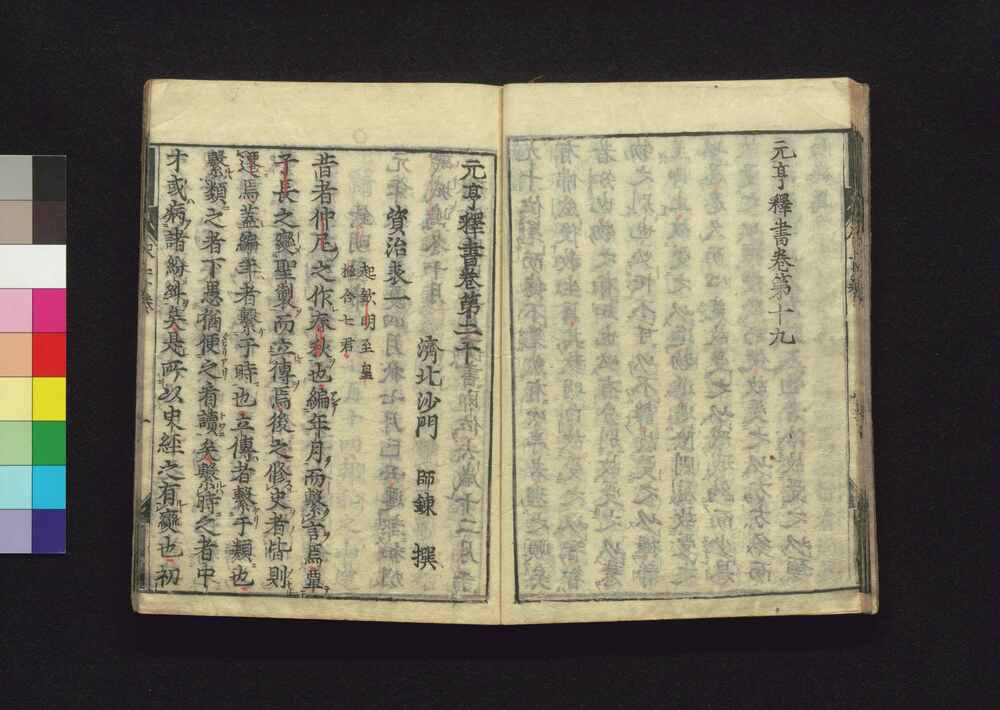 元亨釋書卷第十九
元亨釋書卷第二十
濟北沙門 師錬 撰
資治表一
起欽明至皇
極合七君
昔者仲尼之作春秋也編年月而繫言焉單
子長之變聖製而立傳焉後之修史者皆則
遷焉蓋編年者繫于時也立傳者繫于類也
繫類之者下愚猶便之看讀矣繫時之者中
才或病諸紛糾矣是所以史經之有變也初